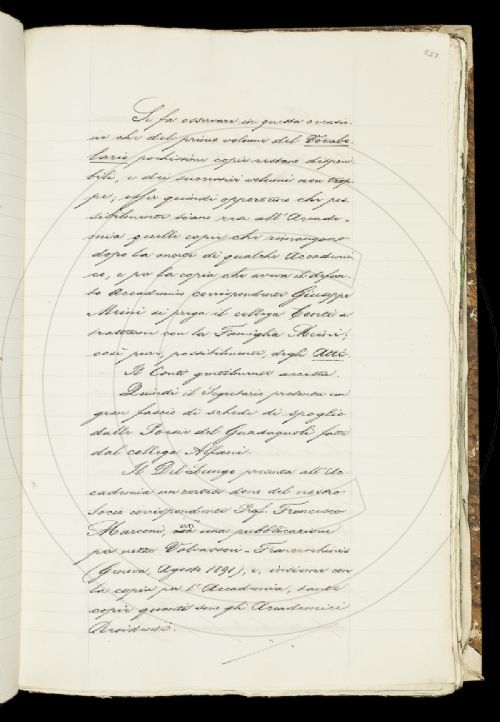 Si fa osservare in questa occasio-
ne che del primo volume del Vocabo-
lario pochissime copie restano disponi-
bili, e dei successivi volumi non trop-
pe; esser quindi opportuno che pos-
sibilmente siano rese all'Accade-
mia quelle copie che rimangono
dopo la morte di qualche Accademi-
co, e per la copia che aveva il defun-
to Accademico corrispondente Giuseppe
Meini si prega il collega Conti a
trattarne con la Famiglia Meini;
così pure, possibilmente, degli Atti.
Il Conti gentilmente accetta.
Quindi il Segretario presenta un
gran fascio di schede di spoglio
dalle Poesie del Guadagnoli fatte
dal collega Alfani.
Il Del Lungo presenta all'Ac-
cademia un cortese dono del nostro
Socio corrispondente Prof. Francesco
Marconi, una pubblicazione
per nozze
(Genova, Agosto 1891), e, insieme con
la copia per l'Accademia, tante
copie quanti sono gli Accademici
Residenti.